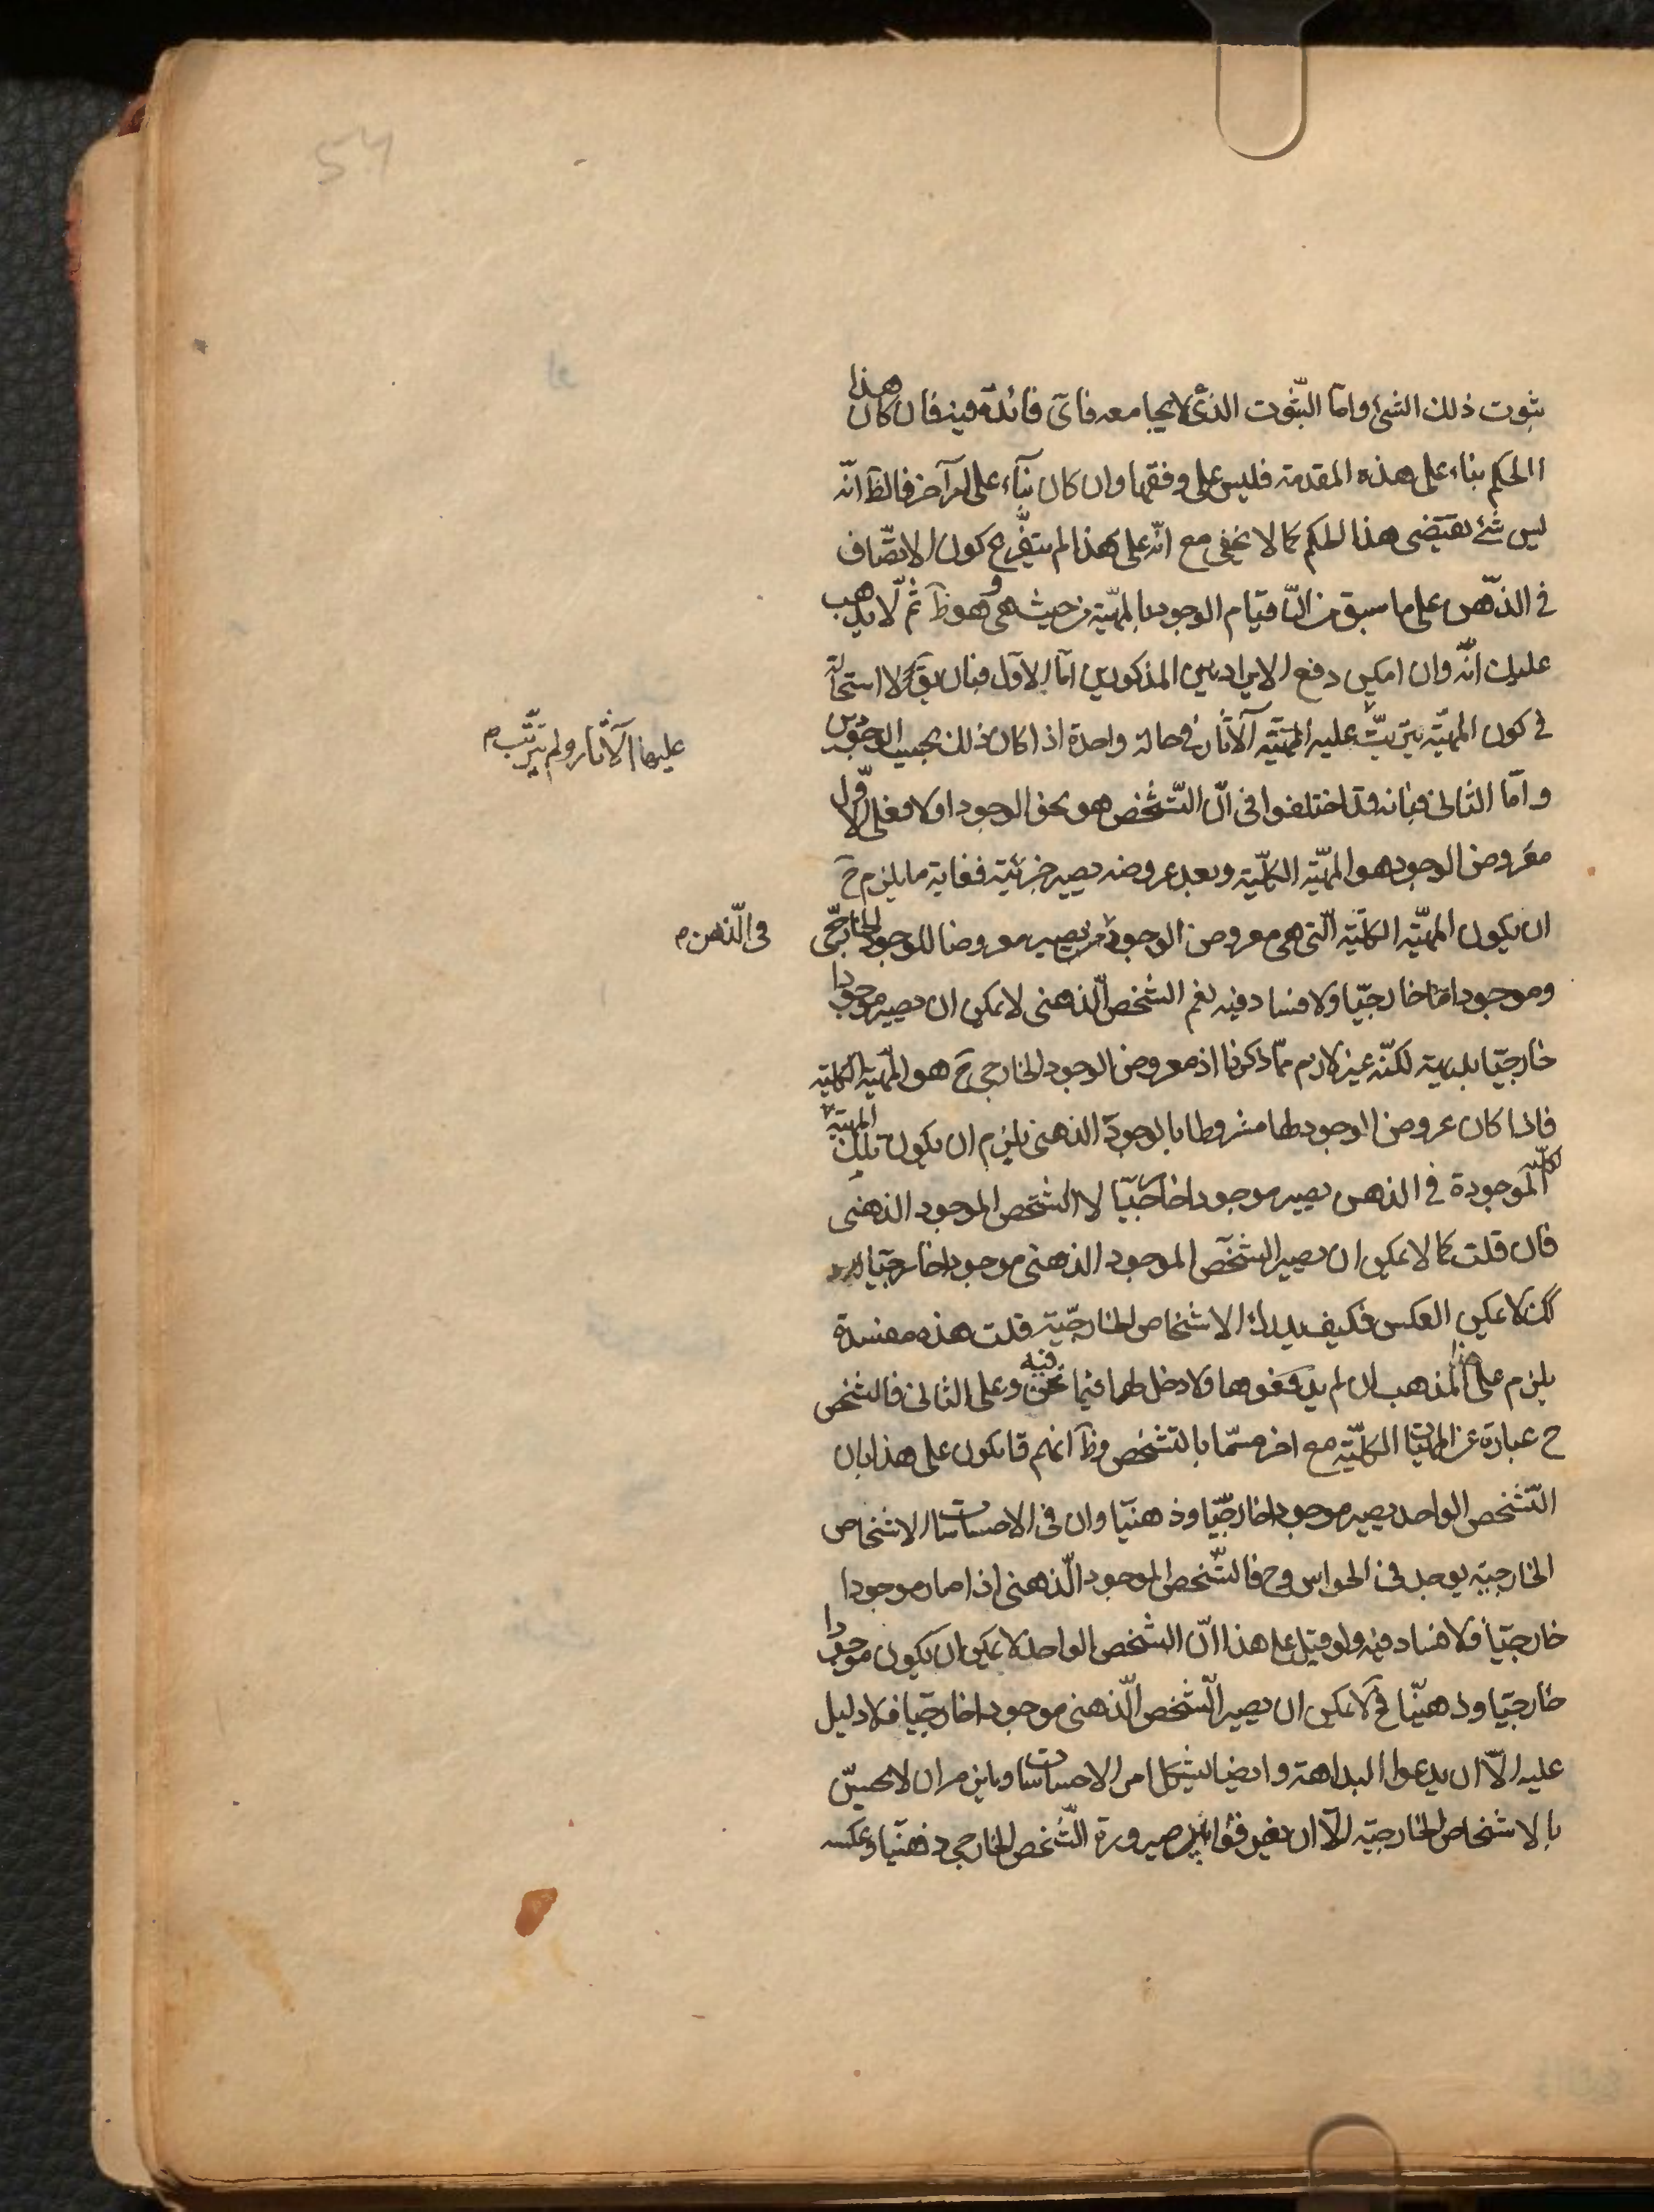 54
ثبوت ذلك الشئ واما الثبوت الذى لا يجامعه فاىّ فائدة فيه فان كان هذا
الحكم بناء على هذه المقدمة فليس على وفقها وان كان بناء على امر آخر فالظ انّه
ليس شئ يقتضى هذا الحكم كما لا يخفى مع انّه على هذا لم يتفرّع كون الاتصّاف
فى الذّهن على ما سبق من انّ قيام الوجود بالمهيّة من حيث هى هى وهو ظ ثم لا يذهب
عليك انّه وان امكن دفع الايرادين المذكورين امّا الاول فبان يقّ لا استحالة
فى كون المهيّة يترتّب عليه الآثار فى حالة واحدة اذا كان ذلك بحسب الوجودين
عليها الآثار ولم يترتّب م
وامّا الثانى فبانه قد اختلفوا فى انّ التّشخّص هو نحو الوجود اولا فعلى الاوّل
معروض الوجود هو المهيّة الكليّة وبعد عروضه يصير جزئيّة فغاية ما يلزم ح
ان يكون المهيّة الكليّة الّتى هى معروض الوجود يصير معروضا للوجود الخارجىّ
فى الّذهن م
وموجودا خارجيّا ولا فساد فيه نعم الشخص الّذهنى لا يمكن ان يصير موجودا
خارجيّا بديهية لكنّه غير لازم ممّا ذكرنا اذ معروض الوجود الخارجى ح هو المهيّة الكليّة
فاذا كان عروض الوجود لها مشروطا بالوجود الذهنى يلزم ان يكون تلك المهيّة
الكليّة الموجودة فى الذهن يصير موجودا خارجيّا لا الشّخص الموجود الذهنى
فان قلت كما لا يمكن ان يصير الشّخص الموجود الذهنى موجودا خارجيّا
كك لا يمكن العكس فكيف يدرك الاشخاص الخارجيّة قلت هذه مفسدة
يلزم على هذا المذهب ان لم يدفعوها ولا دخل لها فيما نحن فيه وعلى الثانى فالشخص
ح عبارة عن المهيّات الكليّة مع امر مسمّا بالتشخص وظ انهم قايلون على هذا بان
التّشخص الواحد يصير موجودا خارجيّا وذهنيّا وان فى الاحساسات الاشخاص
الخارجيّة يوجد فى الحواس وح فالشّخص الموجود الّذهنى اذا صار موجودا
خارجيّا فلا فساد فيه ولو قيل على هذا انّ الشخص الواحد لا يمكن ان يكون موجودا
خارجيّا وذهنيّا فح لا يمكن ان يصير الّشخص الّذهنى موجودا خارجيّا فلا دليل
عليه الّا ان يدعوا البداهة وايضا يشكل امر الاحساسات ويلزم ان لا يحسّ
بالاشخاص الخارجيّة الّا ان يفرقوا بين صيرورة الشّخص الخارجى ذهنيّا وعكسه